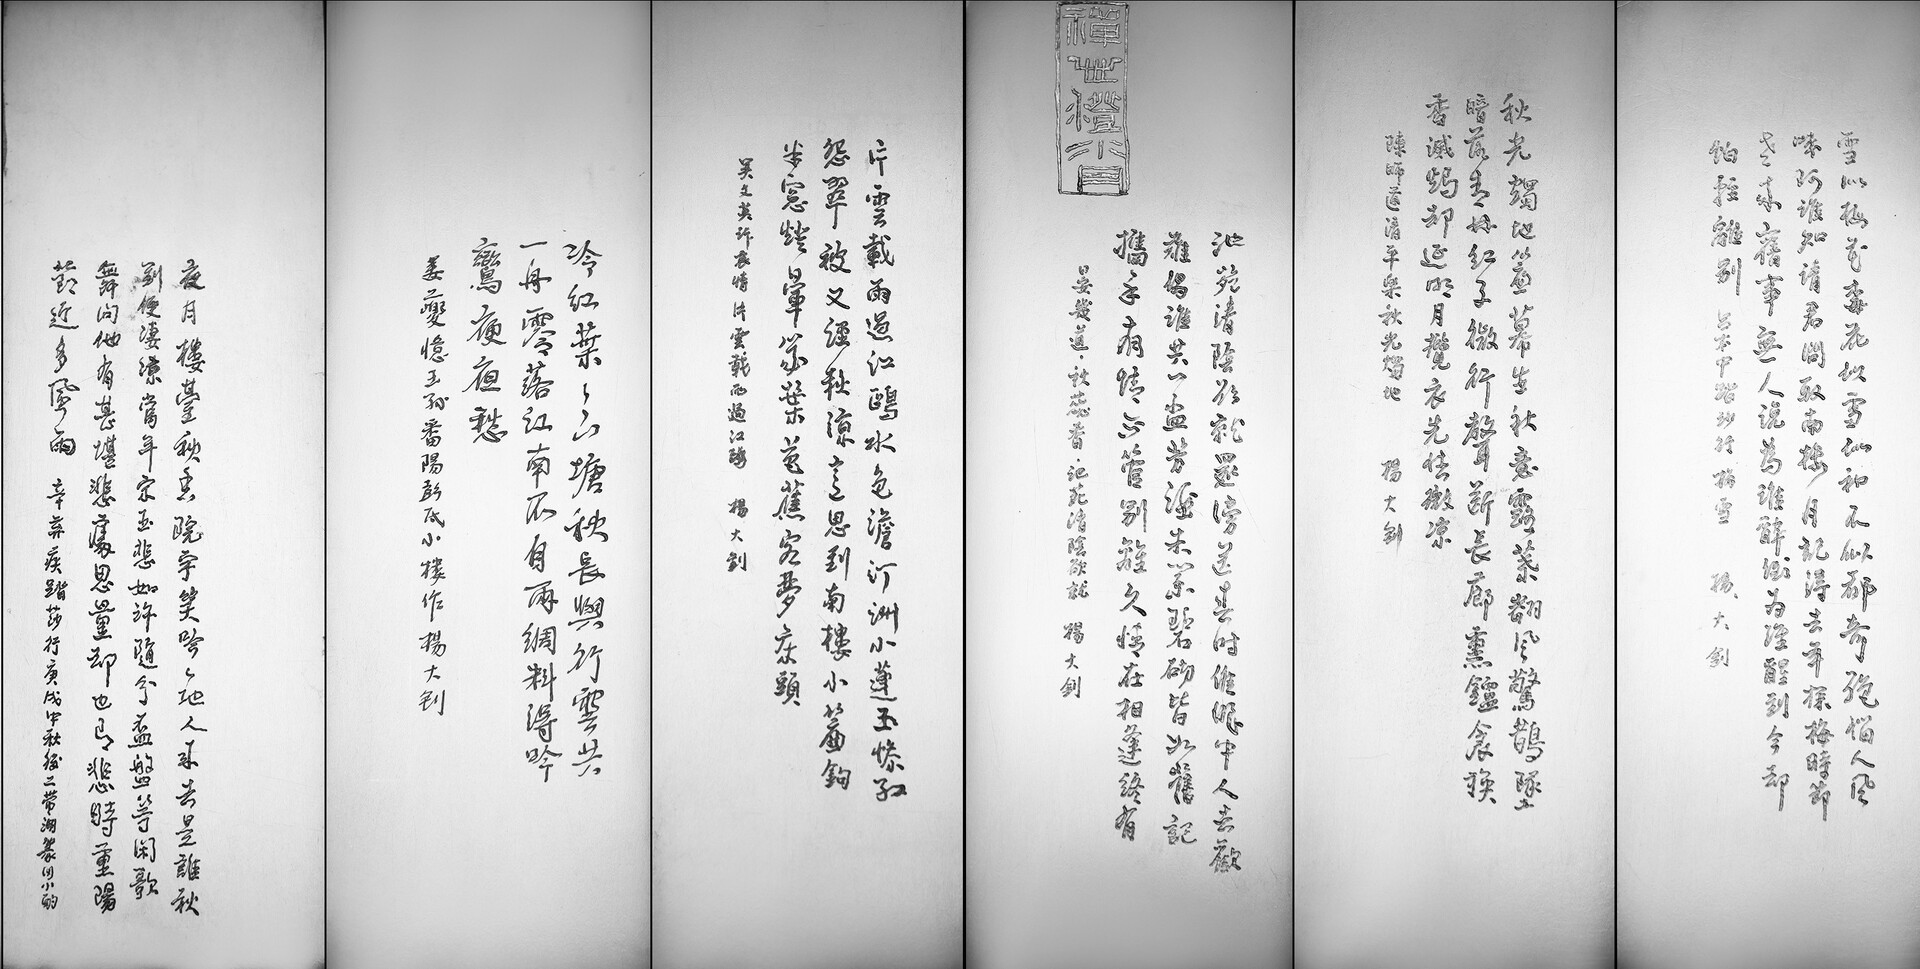 雪似梅花梅花似雪似和不似都奇絕惱人風
味阿誰知請君問取南樓月記得去年探梅時節
老來舊事無人說為誰醉倒為誰醒到今却
怕輕離別 吕本中踏莎行梅雪 楊大釗
秋光燭地簾幕生秋意露葉翻風驚鵲墜
暗落青林紅子微行聲斷長廊熏鑪衾換
香滅燭却延明月攬衣先怯微凉
陳師道清平樂秋光燭地 楊大釗
池苑清陰欲就還傍送春時候眼中人去歡
難偶誰共一盃芳酒朱闌碧砌皆如舊記
攜手有情不管別離久情在相逢終有
晏幾道·秋蕊香·池苑清陰欲就 楊大釗
片雲載雨過江鷗水色澹汀洲小蓮玉慘紅
怨翠被又經秋凉意思到南樓小簾鈎
半窗燈暈幾葉芭蕉客夢床頭
吴文英訴衷情片雲載雨過江鷗 楊大釗
冷紅葉々下塘秋長與行雲共
一舟零落江南不自雨綢料得吟
鸞夜夜愁
姜夔憶王孫番陽彭氏小樓作楊大釗
夜月樓臺秋香院宇笑吟々地人來去是誰秋
到便凄凉當年宋玉悲如許隨分盃盤等閑歌
舞問他有甚堪悲處思量却也有悲時重陽
節近多風雨 辛棄疾踏莎行庚戌中秋後二帶湖篆岡小酌